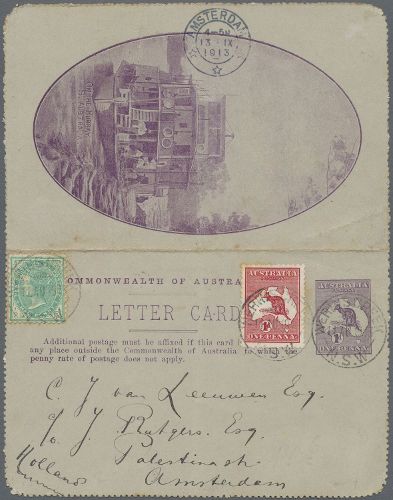 AMSTERDAM
4-5N
13·IX
1913
COMMONWEALTH OF AUSTRA
LETTER CARD
Additional postage must be affixed if this card
any place outside the Commonwealth of Australia to which the
penny rate of postage does not apply.
AUSTRALIA
ONE PENNY
AUSTRALIA
ONE PENNY
N.S.W.
C. J. van Leeuwen Esq.
c/o J. Rutgers. Esq.
Palestrinastr.
Amsterdam
Holland